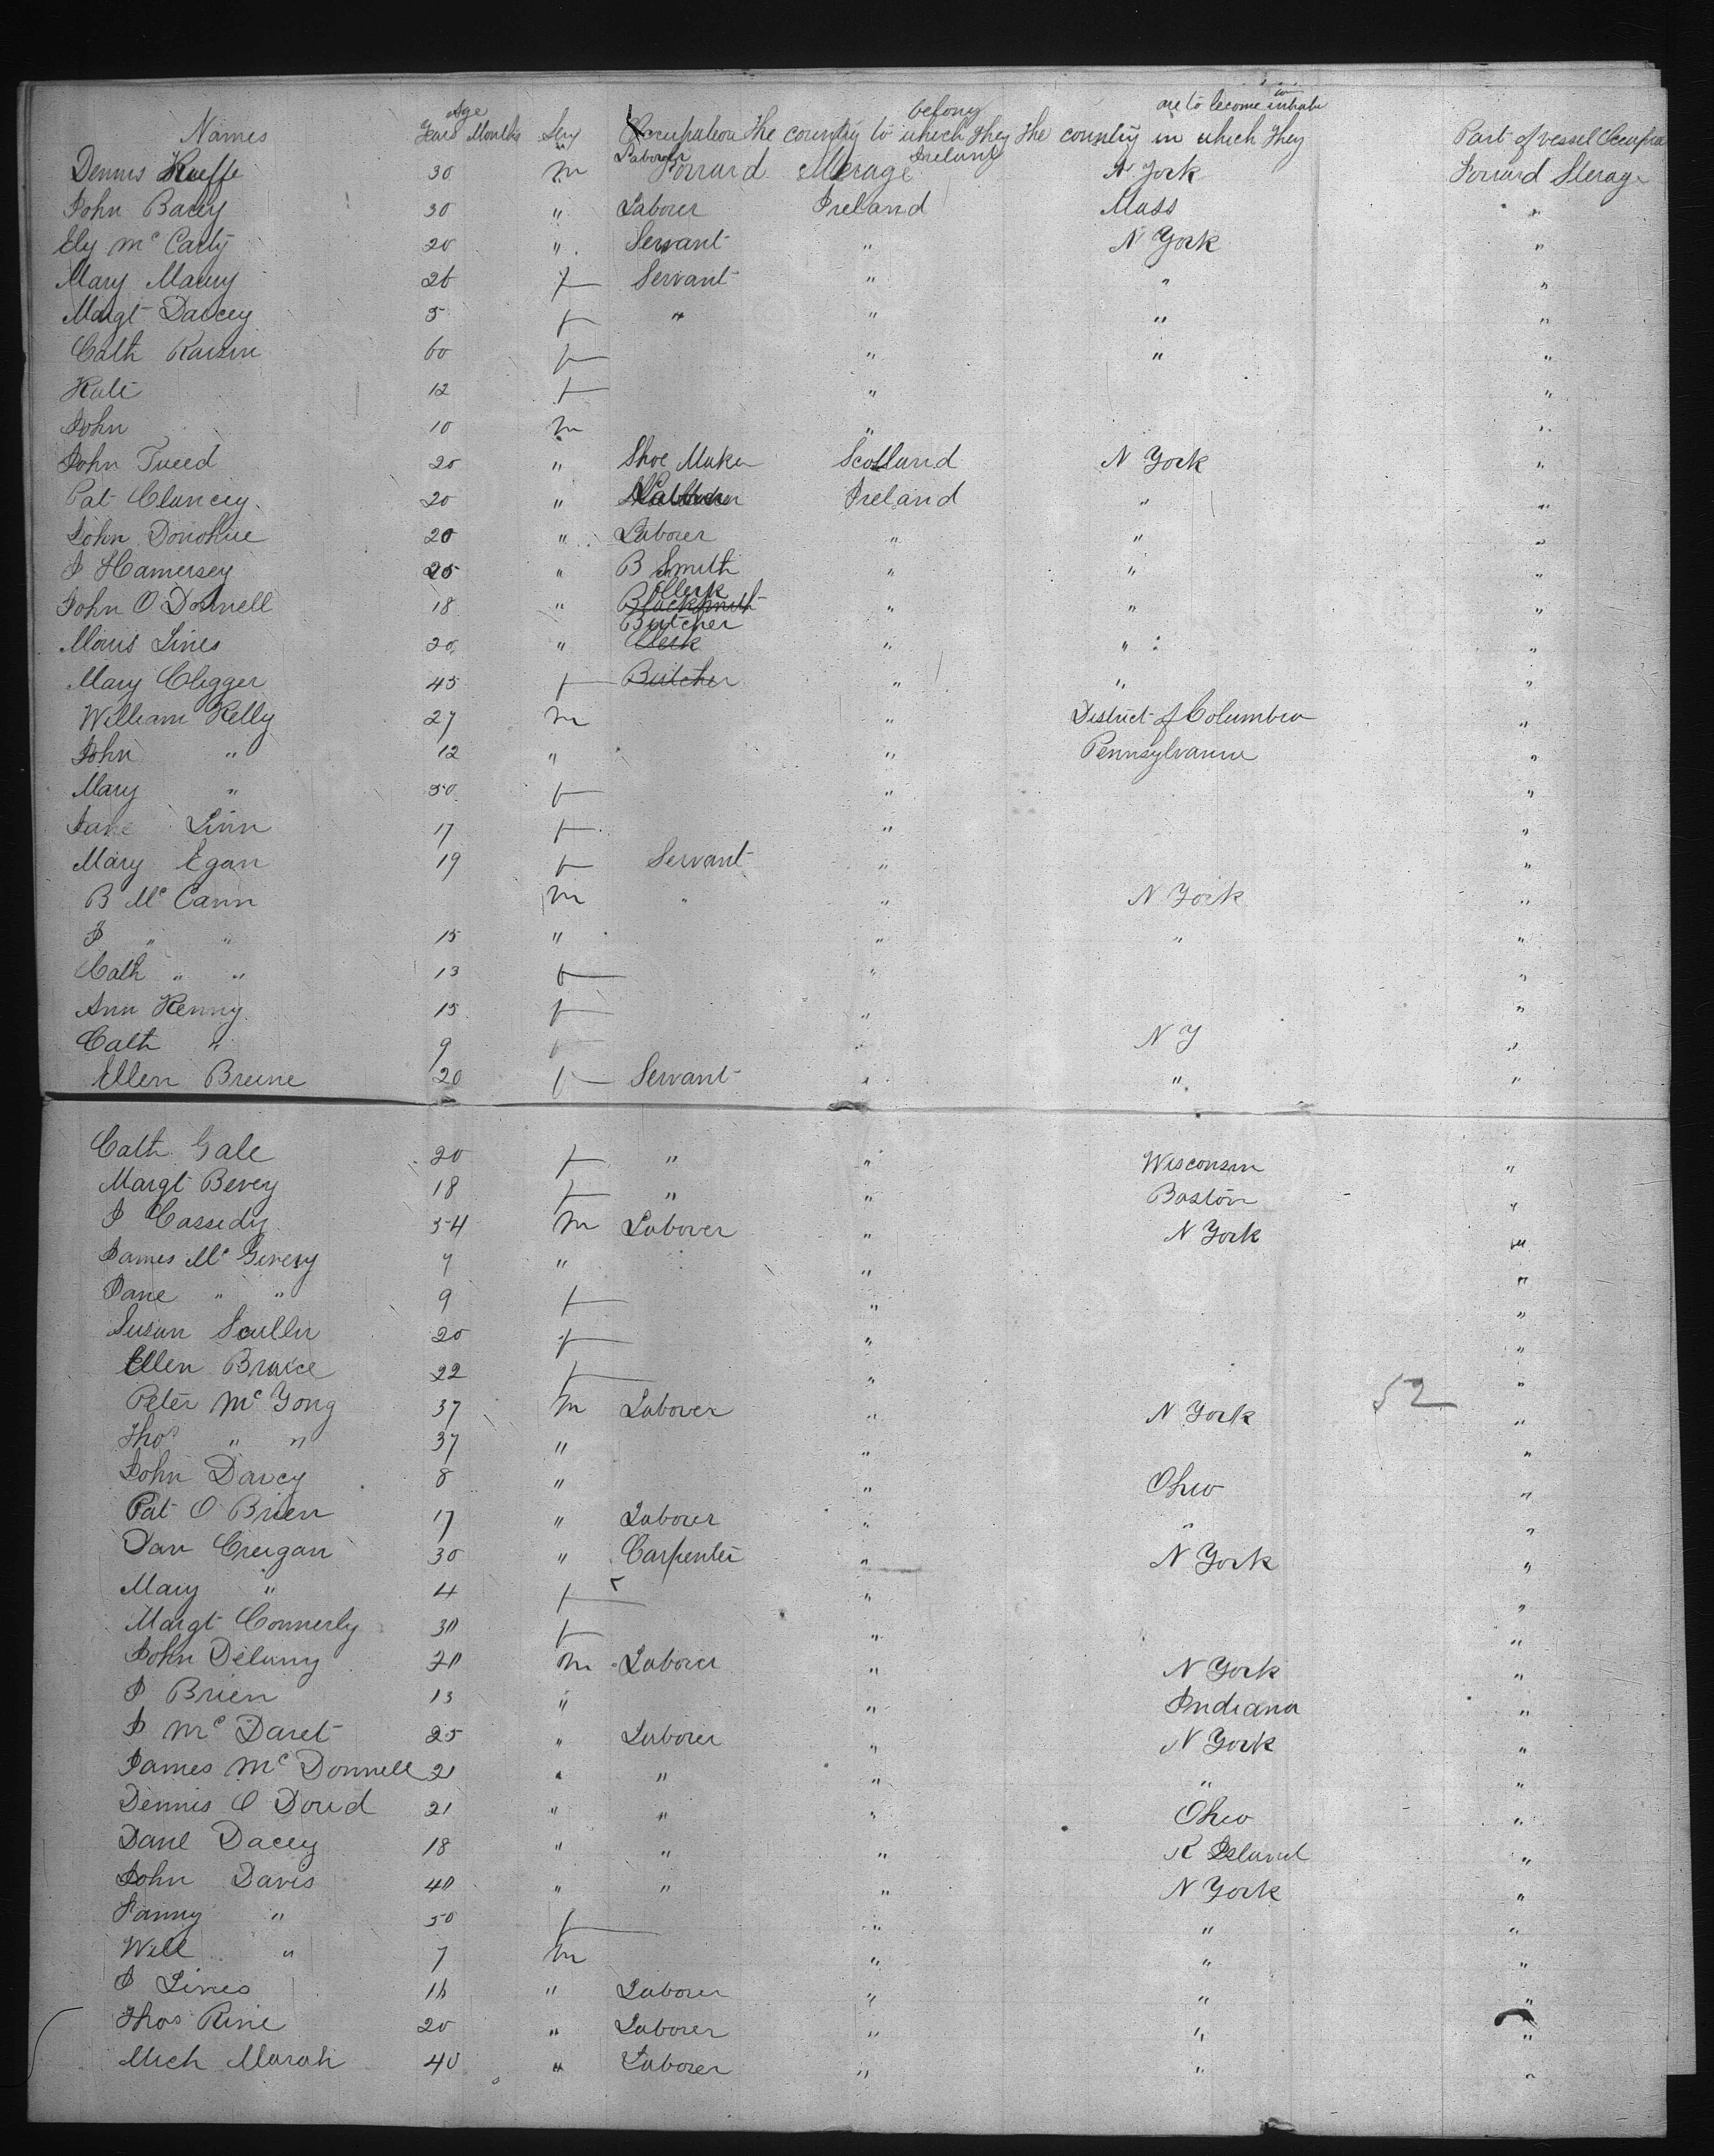 belong are to become inhabi
Names Age Years Months Sex Occupation The country to which they The country in which they Part of vessel Occupied
Dennis Keeffe 30 m Laborer Forward Sterage Ireland N York Forward Sterage
John Barry 30 " Laborer Ireland Mass "
Ely Mc Carty 20 " Servant " N York "
Mary 26 f Servant " " "
Margt Darcey 5 f " " " "
Cath 60 f " " "
Kate 12 f " "
John 10 m " "
John Tweed 20 " Shoe Maker Scotland N York "
Pat Clancey 20 " Ireland " "
John Donohue 20 " Laborer " " "
J Hamersey 25 " B Smith " " "
John O Donnell 18 " Clerk Blacksmith " " "
Moris Lines 20 " Butcher Clerk " " "
Mary Cligger 45 f Butcher " " "
William Kelly 27 m " District of Columbia "
John " 12 " " Pennsylvania "
Mary " 50 f " "
Jane Linn 17 f " "
Mary Egan 19 f Servant " "
B Mc Cann m " " N York "
J " " 15 " " " "
Cath " " 13 f " "
Ann Kenny 15 f " "
Cath " 9 f " N Y "
Ellen Breene 20 f Servant " " "
Cath Gale 20 f " " Wisconsin "
Margt Bevey 18 f " " Boston "
J Cassedy 54 m Laborer " N York "
James Mc Giversy 7 " " "
Jane " " 9 f " "
Susan Scullin 20 f " "
Ellen 22 f " "
Peter Mc Gong 37 m Laborer " N York 52 "
Thos " " 37 " " "
John Darcy 8 " " Ohio "
Pat O Brien 17 " Laborer " " "
Dan Creigan 30 " Carpenter " N York "
Mary " 4 f " "
Margt Connerly 30 f " "
John Delany 20 m Laborer " N York "
J Brien 13 " " Indiana "
J Mc Daret 25 " Laborer " N York "
James Mc Donnell 21 " " " " "
Dennis O Doud 21 " " " Ohio "
Danl Dacey 18 " " " R Island "
John Davis 40 " " " N York "
Fanny " 50 f " " "
Will " 7 m " " "
J Lines 16 " Laborer " " "
Thos Rine 20 " Laborer " " "
Mich Marah 40 " Laborer " " "